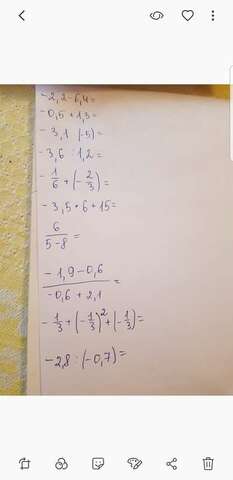 -2,2-6,4=
-0,5+1,3=
-3,1 (-5)=
-3,6 : 1,2=
-1/6+(-2/3)=
-3,5+6+15=
6/(5-8)=
(-1,9-0,6)/(-0,6+2,1)=
-1/3+(-1/3)²+(-1/3)=
-2,8:(-0,7)=